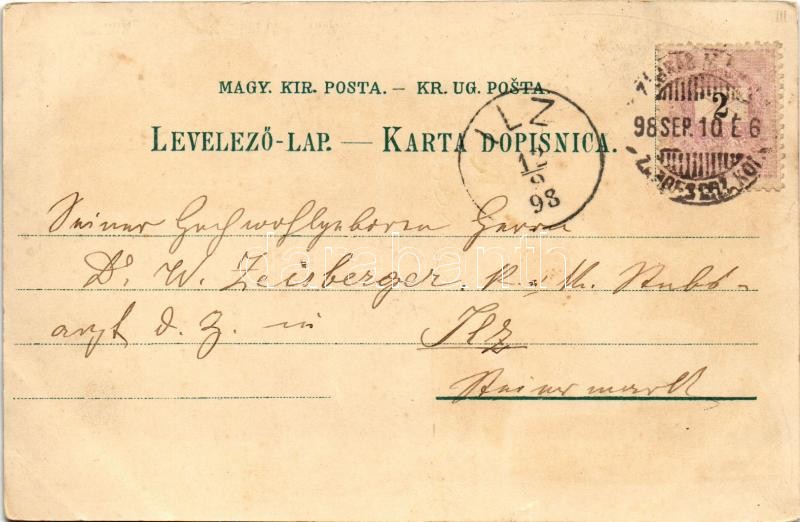 MAGY. KIR. POSTA. — KR. UG. POŠTA.
LEVELEZŐ-LAP. — KARTA DOPISNICA.
ILZ
12
9
98
2
98 SEP. 10 E 6
Seiner Hochwohlgeboren Herrn
Dr W. Zeisberger. K. u. K. Stabs-
arzt d. Z. in Ilz
Steiermark
darabanth